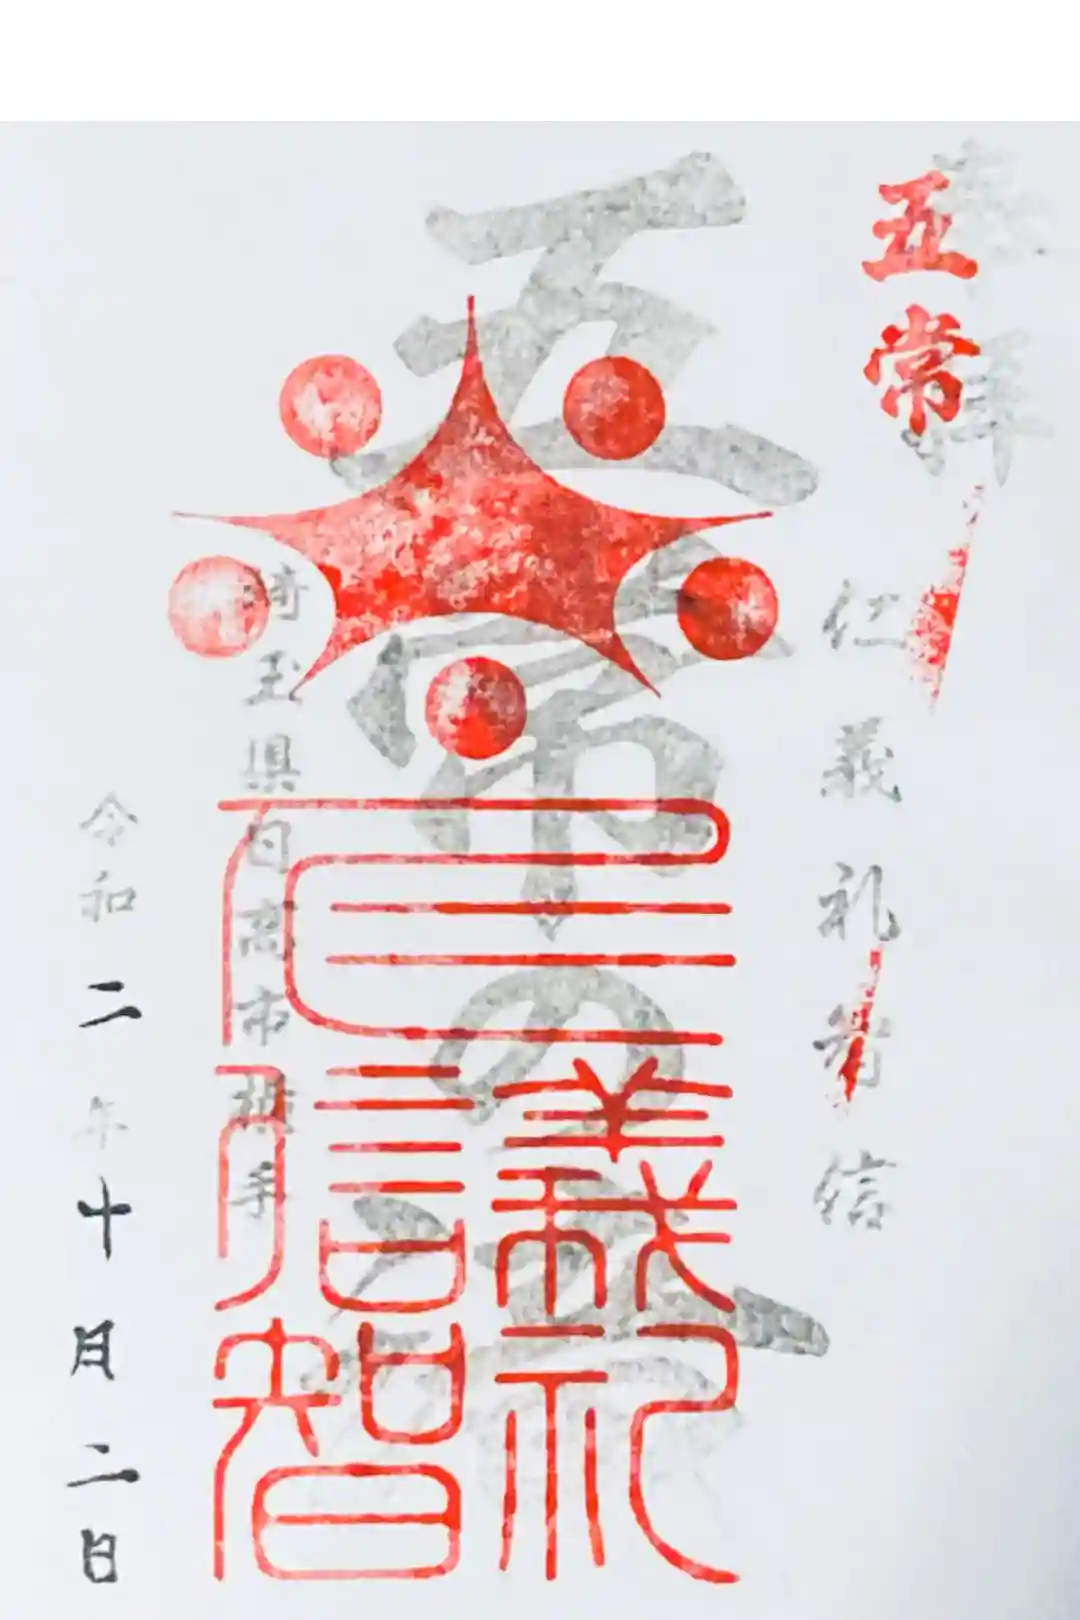 奉拝
五常
仁義礼智信
五常の滝
仁義礼信智
埼玉県日高市横手
令和二年十月二日